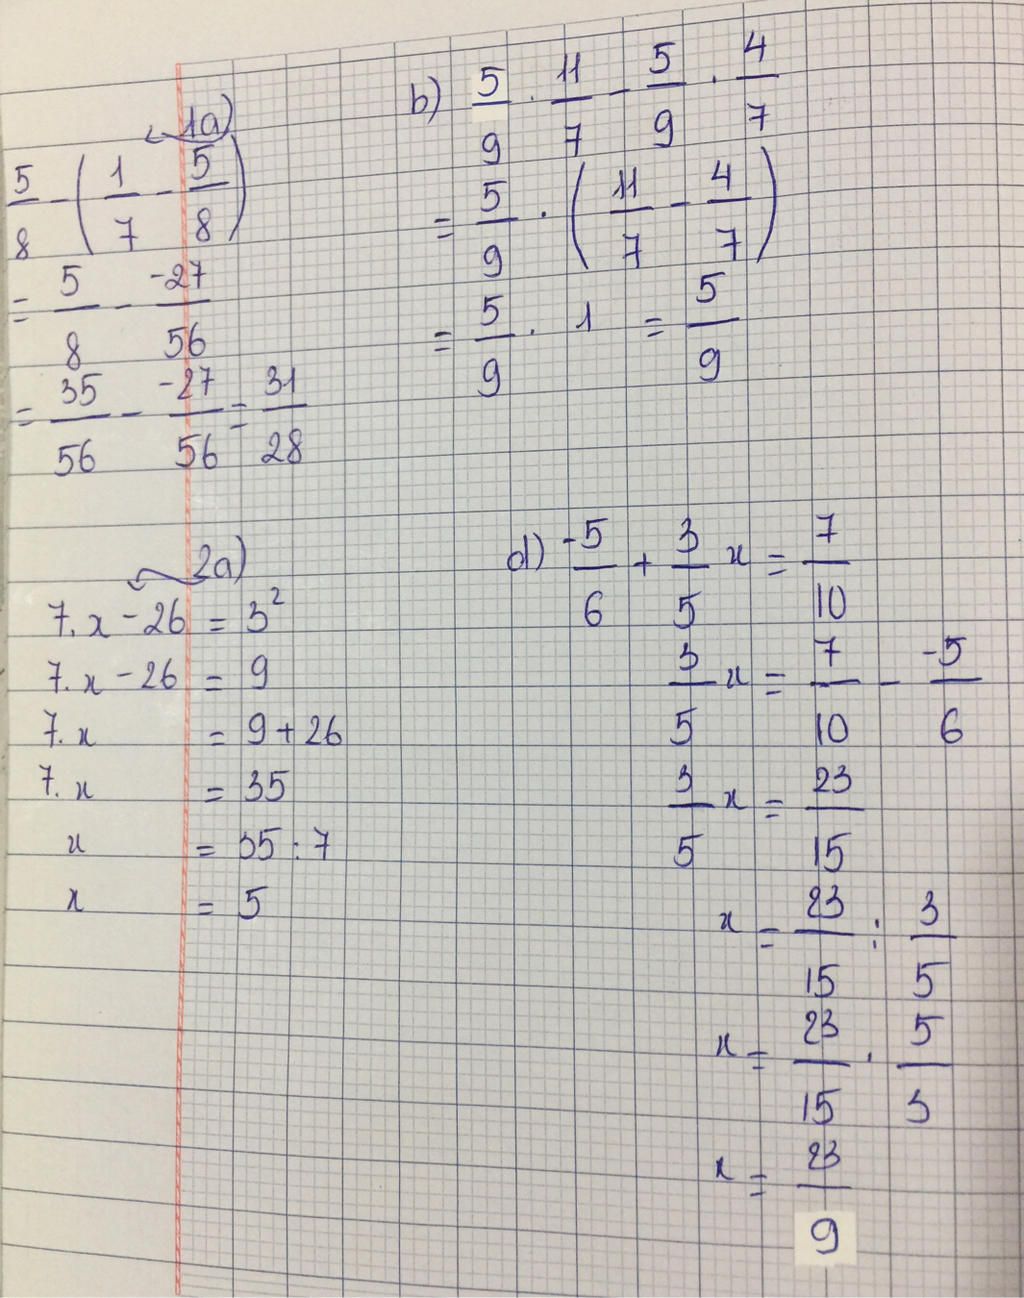 1a)
5/8 - (1/7 - 5/8)
= 5/8 - -27/56
= 35/56 - -27/56 = 31/28
b) 5/9 . 11/7 - 5/9 . 4/7
= 5/9 . (11/7 - 4/7)
= 5/9 . 1 = 5/9
2a)
7.x - 26 = 3²
7.x - 26 = 9
7.x = 9 + 26
7.x = 35
x = 35 : 7
x = 5
d) -5/6 + 3/5 x = 7/10
3/5 x = 7/10 - -5/6
3/5 x = 23/15
x = 23/15 : 3/5
x = 23/15 . 5/3
x = 23/9